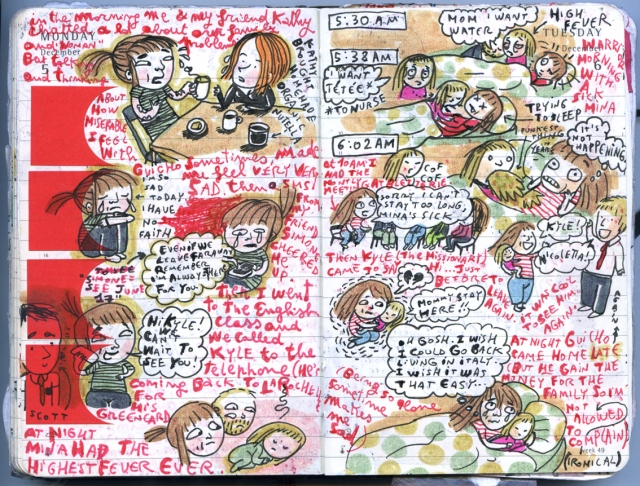 In the morning me & my friend Kathy
chatted a lot about our family
MONDAY
and "WOMAN" problems
December
5
But talk
and thinking
KATHY
BOUGHT
HOMEMADE
ORGANIC
NUTELLA
ABOUT
HOW
MISERABLE
I FEEL
WITH
GUICHO SOMETIMES, MADE
me feel VERY VERY
SAD, then a SMS!
I'M SO
SAD
TODAY.
I HAVE
NO
FAITH
FROM
MY
FRIEND
SIMONE
CHEERED
ME
UP.
EVEN IF WE
LEAVE FARAWAY
REMEMBER
I'M ALWAYS THERE
FOR YOU
SIMONE
SEE JUNE
17"
Then I went
to the English
class and
we called
KYLE to the
telephone (HE'S
coming BACK TO
FOR
HIS
GREENCARD
HI KYLE!
CAN'T
WAIT TO
SEE YOU!
SCOTT
AT NIGHT
MINA HAD THE
HIGHEST FEVER EVER.
5:30 A.M
MOM I WANT
WATER
HIGH
FEVER
TUESDAY
December
5:38 AM
I WANT
TETEE*
*TO NURSE
MORNING
WITH
A
SICK
MINA
TRYING
TO SLEEP
6:02 AM
IT'S
NOT
HAPPENING.
AT 10AM I
HAD THE
MEET
COF
COF
SORRY I CAN'T
STAY TOO LONG,
MINA'S SICK
KYLE!
NICOLETTA!
THEN KYLE (THE MISSIONARY)
CAME TO SAY HI... JUST
BEFORE TO
LEAVE
AGAIN.
IT WAS COOL
TO SEE HIM
AGAIN
MOMMY STAY
HERE!!
OH GOSH. I WISH
I COULD GO BACK
LIVING IN ITALY
I WISH IT WAS
THAT EASY.
Being so alone
sometime
makes
me
sad
AT NIGHT GUICHO
CAME HOME LATE
(BUT HE GAIN THE
MONEY FOR THE
FAMILY SO I'M
NOT
ALLOWED
TO
COMPLAIN)
week 49
(IRONICAL)